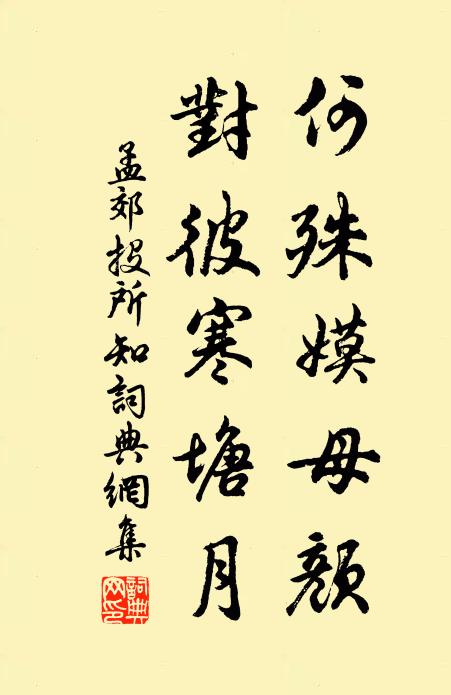 何殊嫫母顏
對彼寒塘月
孟郊投所知詞典網集